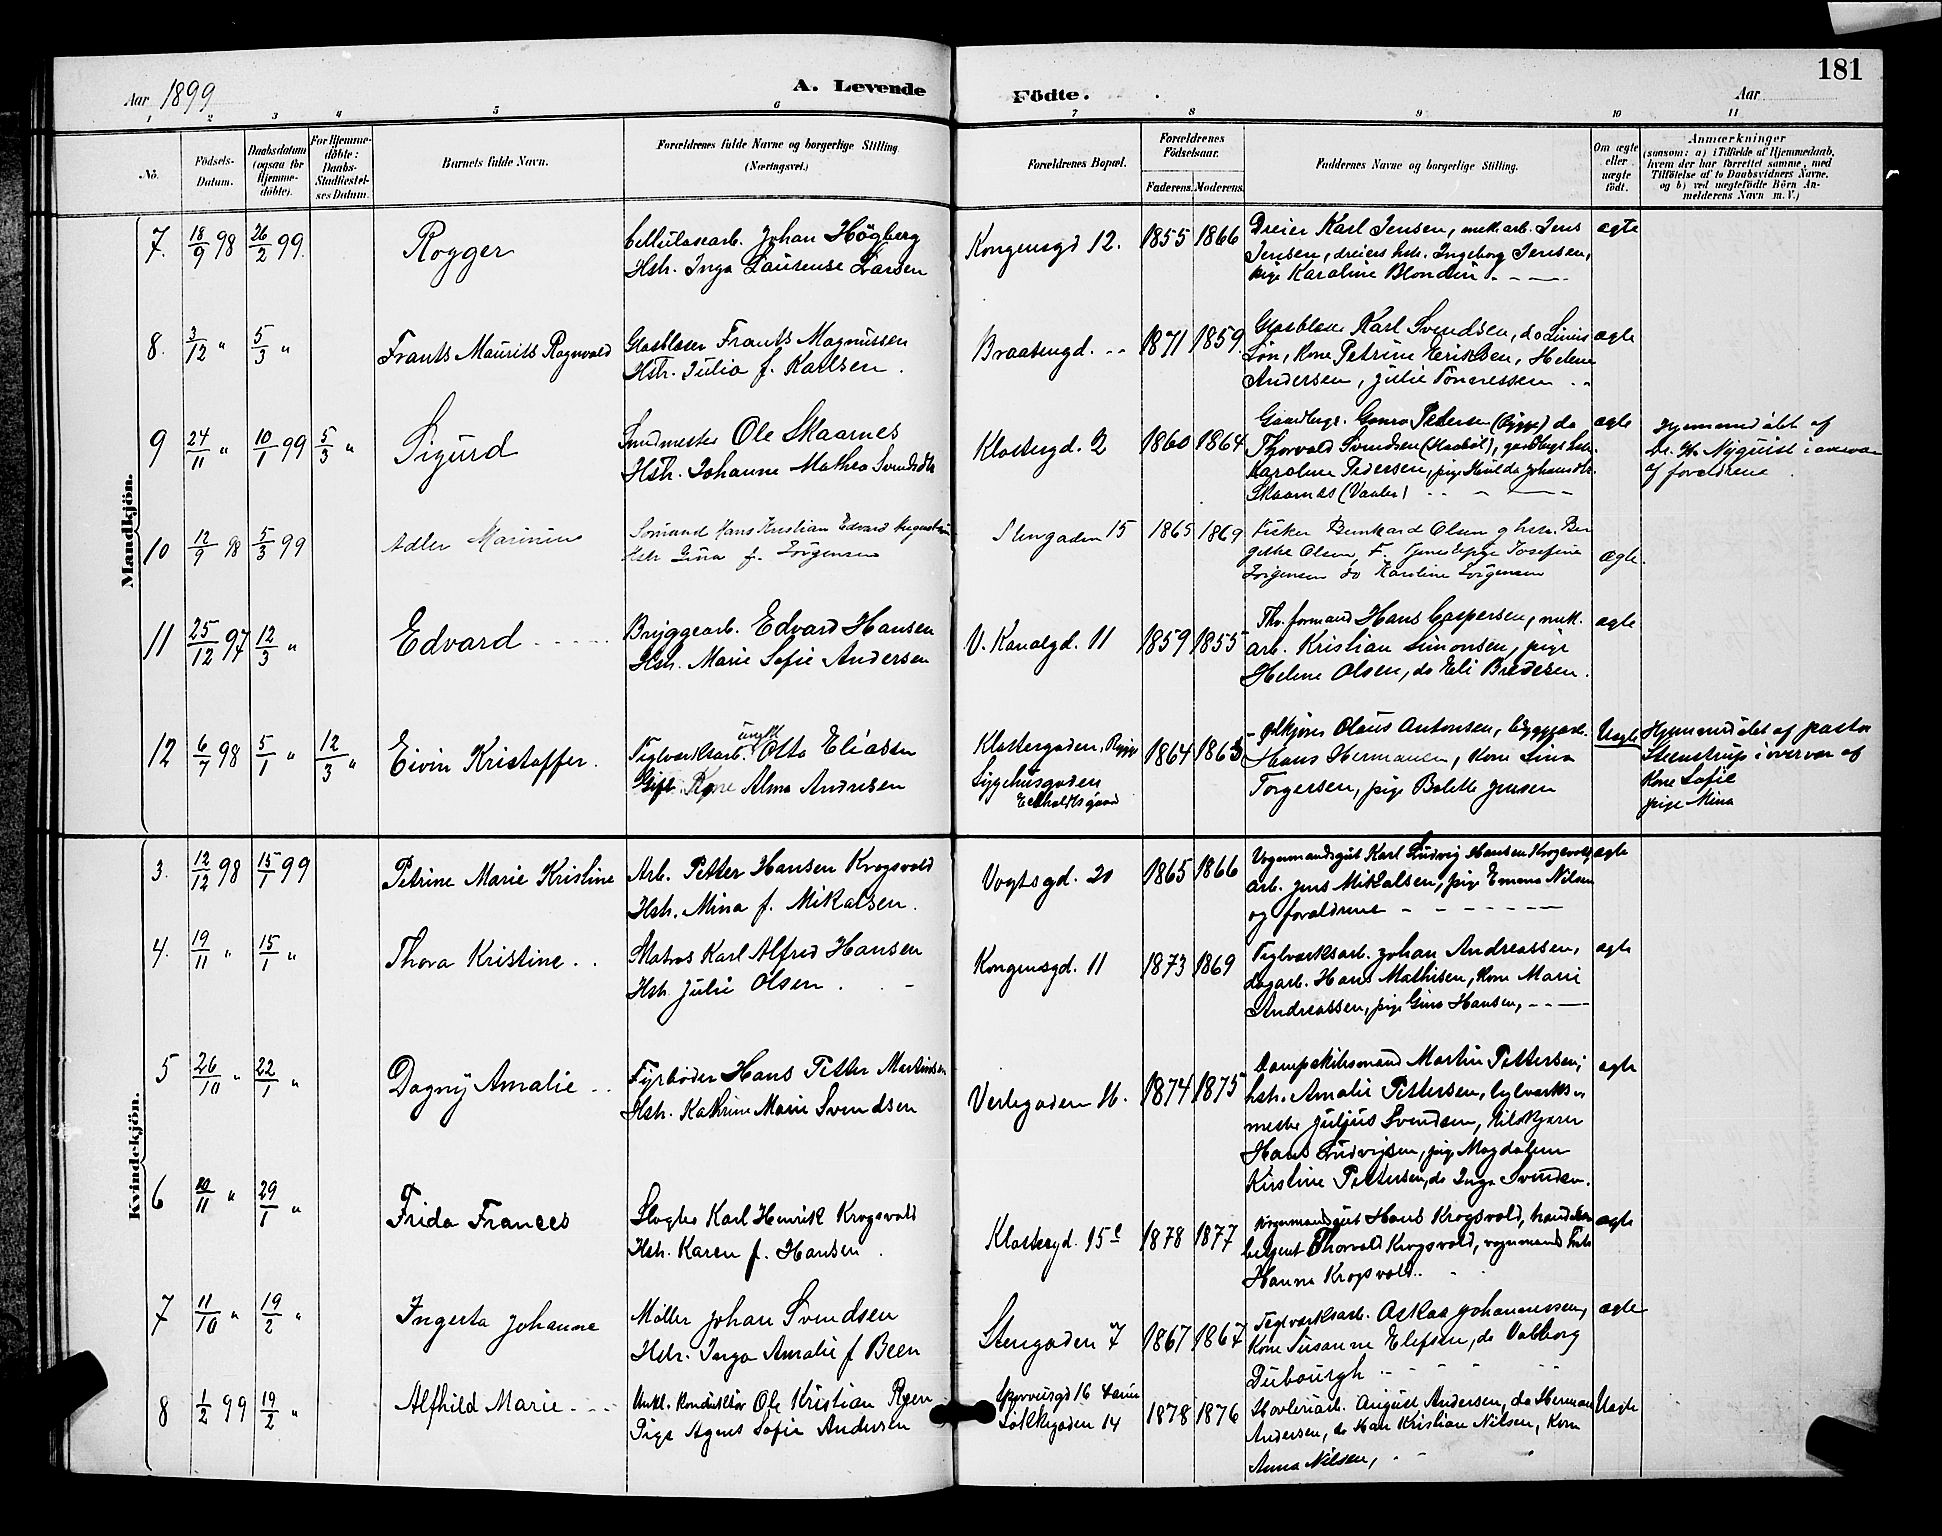 181
Aar 1899
A. Levende
Födte.
Aar
1 2 3 4 5 6 7 8 9 10 11
No.
Födsels-
Datum.
Daabsdatum
(ogsaa for
Hjemme-
döbte).
For Hjemme-
döbte:
Daabs-
Stadfæstel-
ses Datum.
Barnets fulde Navn.
Forældrenes fulde Navne og borgerlige Stilling
(Næringsvei.)
Forældrenes Bopæl.
Forældrenes
Födselsaar.
Faderens. Moderens.
Faddernes Navne og borgerlige Stilling.
Om ægte
eller
uægte
födt.
Anmærkninger
(saasom: a) i Tilfælde af Hjemmedaab,
hvem der har forrettet samme, med
Tilföielse af to Daabsvidners Navne.
og b) ved uægtefödte Börn An-
melderens Navn m. V.)
Mandkjön.
7. 18/9 98 26/2 99. Rogger
Cellulosearb. Johan Högberg
Hstr. Inga Laurense Larsen
Kongensgd 12. 1855 1866
Dreier Karl Jensen, mek. arb. Jens
Jensen, dreiers hstr. Ingeborg Jensen,
pige Karoline Blondin
ægte
8. 3/12 " 5/3 " Frants Maurits Ragnvald
Glasblaser Frants Magnussen
Hstr. Julia f. Karlsen.
Braatengd. 1871 1859
Glasblaser Karl Svendsen, do Linus
Lön, Kone Petrine Eriksen, Helene
Andersen, Julie
ægte
9 24/11 " 10/1 99 5/3 " Sigurd
Smedmester Ole Skaarnes
Hstr. Johanne Mathea Svendsdtr
Klostergd. 2 1860 1864
Gaardbrgr. Pedersen (Rygge) do
Thorvald Svendsen, gaardbrgs hstr.
Karoline Pedersen, pige Hulda Johansdtr.
Skaarnæs (Vaaler)
ægte
Hjemmedöbt af
Nyquist i overvær
af forældrene
10 12/9 98 5/3 99 Adler Marinius
Sömand Hans Kristian Edvard
Hstr Lina f. Jörgensen
Stengaden 15 1865 1869
Fisker Bernhard Olsen og hstr. Ber
gitte Olsen, Josefine
Jörgensen do Karoline Jörgensen
ægte.
11 25/12 97 12/3 " Edvard
Bryggearb. Edvard Hansen
Hstr. Marie Sofie Andersen
V. Kanalgd. 11 1859 1855
formand Hans Caspersen, mek.
arb. Kristian Simonsen, pige
Helene Olsen, do Eli Bredesen.
ægte
12 6/7 98 5/1 " 12/3 " Eivin Kristoffer.
Teglværksarb. ungk. Otto Eliassen
Gift Kone Alma Andresen
Klostergaden, Rygge
Sygehusgaden
1864 1863
Olaus Antonsen, byggearb.
Hans Hermansen, kone Lina
Torgersen, pige Bolette Jensen
Uægte
Hjemmedöbt af pastor
Steenstrup i overvær af
Kone Sofie
pige Mina
Kvindekjön.
3. 12/12 98 15/1 99 Petrine Marie Kristine
Arb. Petter Hansen Krogsvold
Hstr. Mina f. Mikalsen.
Vogtsgd. 20 1865 1866
Vognmandsgut Karl Ludvig Hansen Krogsvold,
arb. Jens Mikalsen, pige Emma Nilsen
og forældrene
ægte
4. 19/11 " 15/1 " Thora Kristine.
Matros Karl Alfred Hansen
Hstr. Julie Olsen.
Kongensgd. 11 1873 1869
Teglværksarb. Johan Andreassen,
dagarb. Hans Mathisen, kone Marie
Andreassen, pige Gina Hansen,
ægte
5 26/10 " 22/1 " Dagny Amalie
Fyrböder Hans Petter Martinsen
Hstr. Kathrine Marie Svendsen
Verlegaden 16. 1874 1875
Dampskibsmand Martin Pettersen,
hstr. Amalie Pettersen,
mester Juljus Svendsen,
Hans Ludvigsen, pige Magdalene
Kirstine Pettersen, do Inga Svendsen.
ægte
6 20/11 " 29/1 " Frida Frances
Slagter Karl Henrik Krogsvold
Hstr. Karen f. Hansen.
Klostergd. 15c 1878 1877
Vognmandsgut Hans Krogsvold, handels
betjent Thorvald Krogsvold, vognmands hstr
Hanna Krogsvold.
ægte
7 11/10 " 19/2 " Ingerta Johanne
Möller Johan Svendsen
Hstr. Inga Amalie f Been
Stengaden 7 1867 1867
Teglværksarb. Oskar Johannessen,
Kone Susanne Elefsen, do Valborg
Dubourgh
ægte
8 1/2 99 19/2 " Alfhild Marie
Ungk. Konduktör Ole Kristian Ryen
Pige Agnes Sofie Andersen
16
Lökkegaden 14
1878 1876
Hövleriarb. August Andersen, do Herman
Andersen, do Karl Kristian Nilsen, Kone
Anna Nilsen,
Uægte